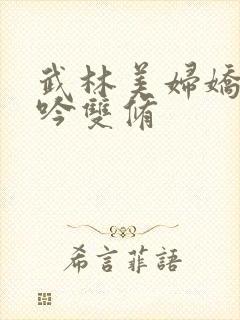 武林美婦嬌
吟雙脩
希言菲語